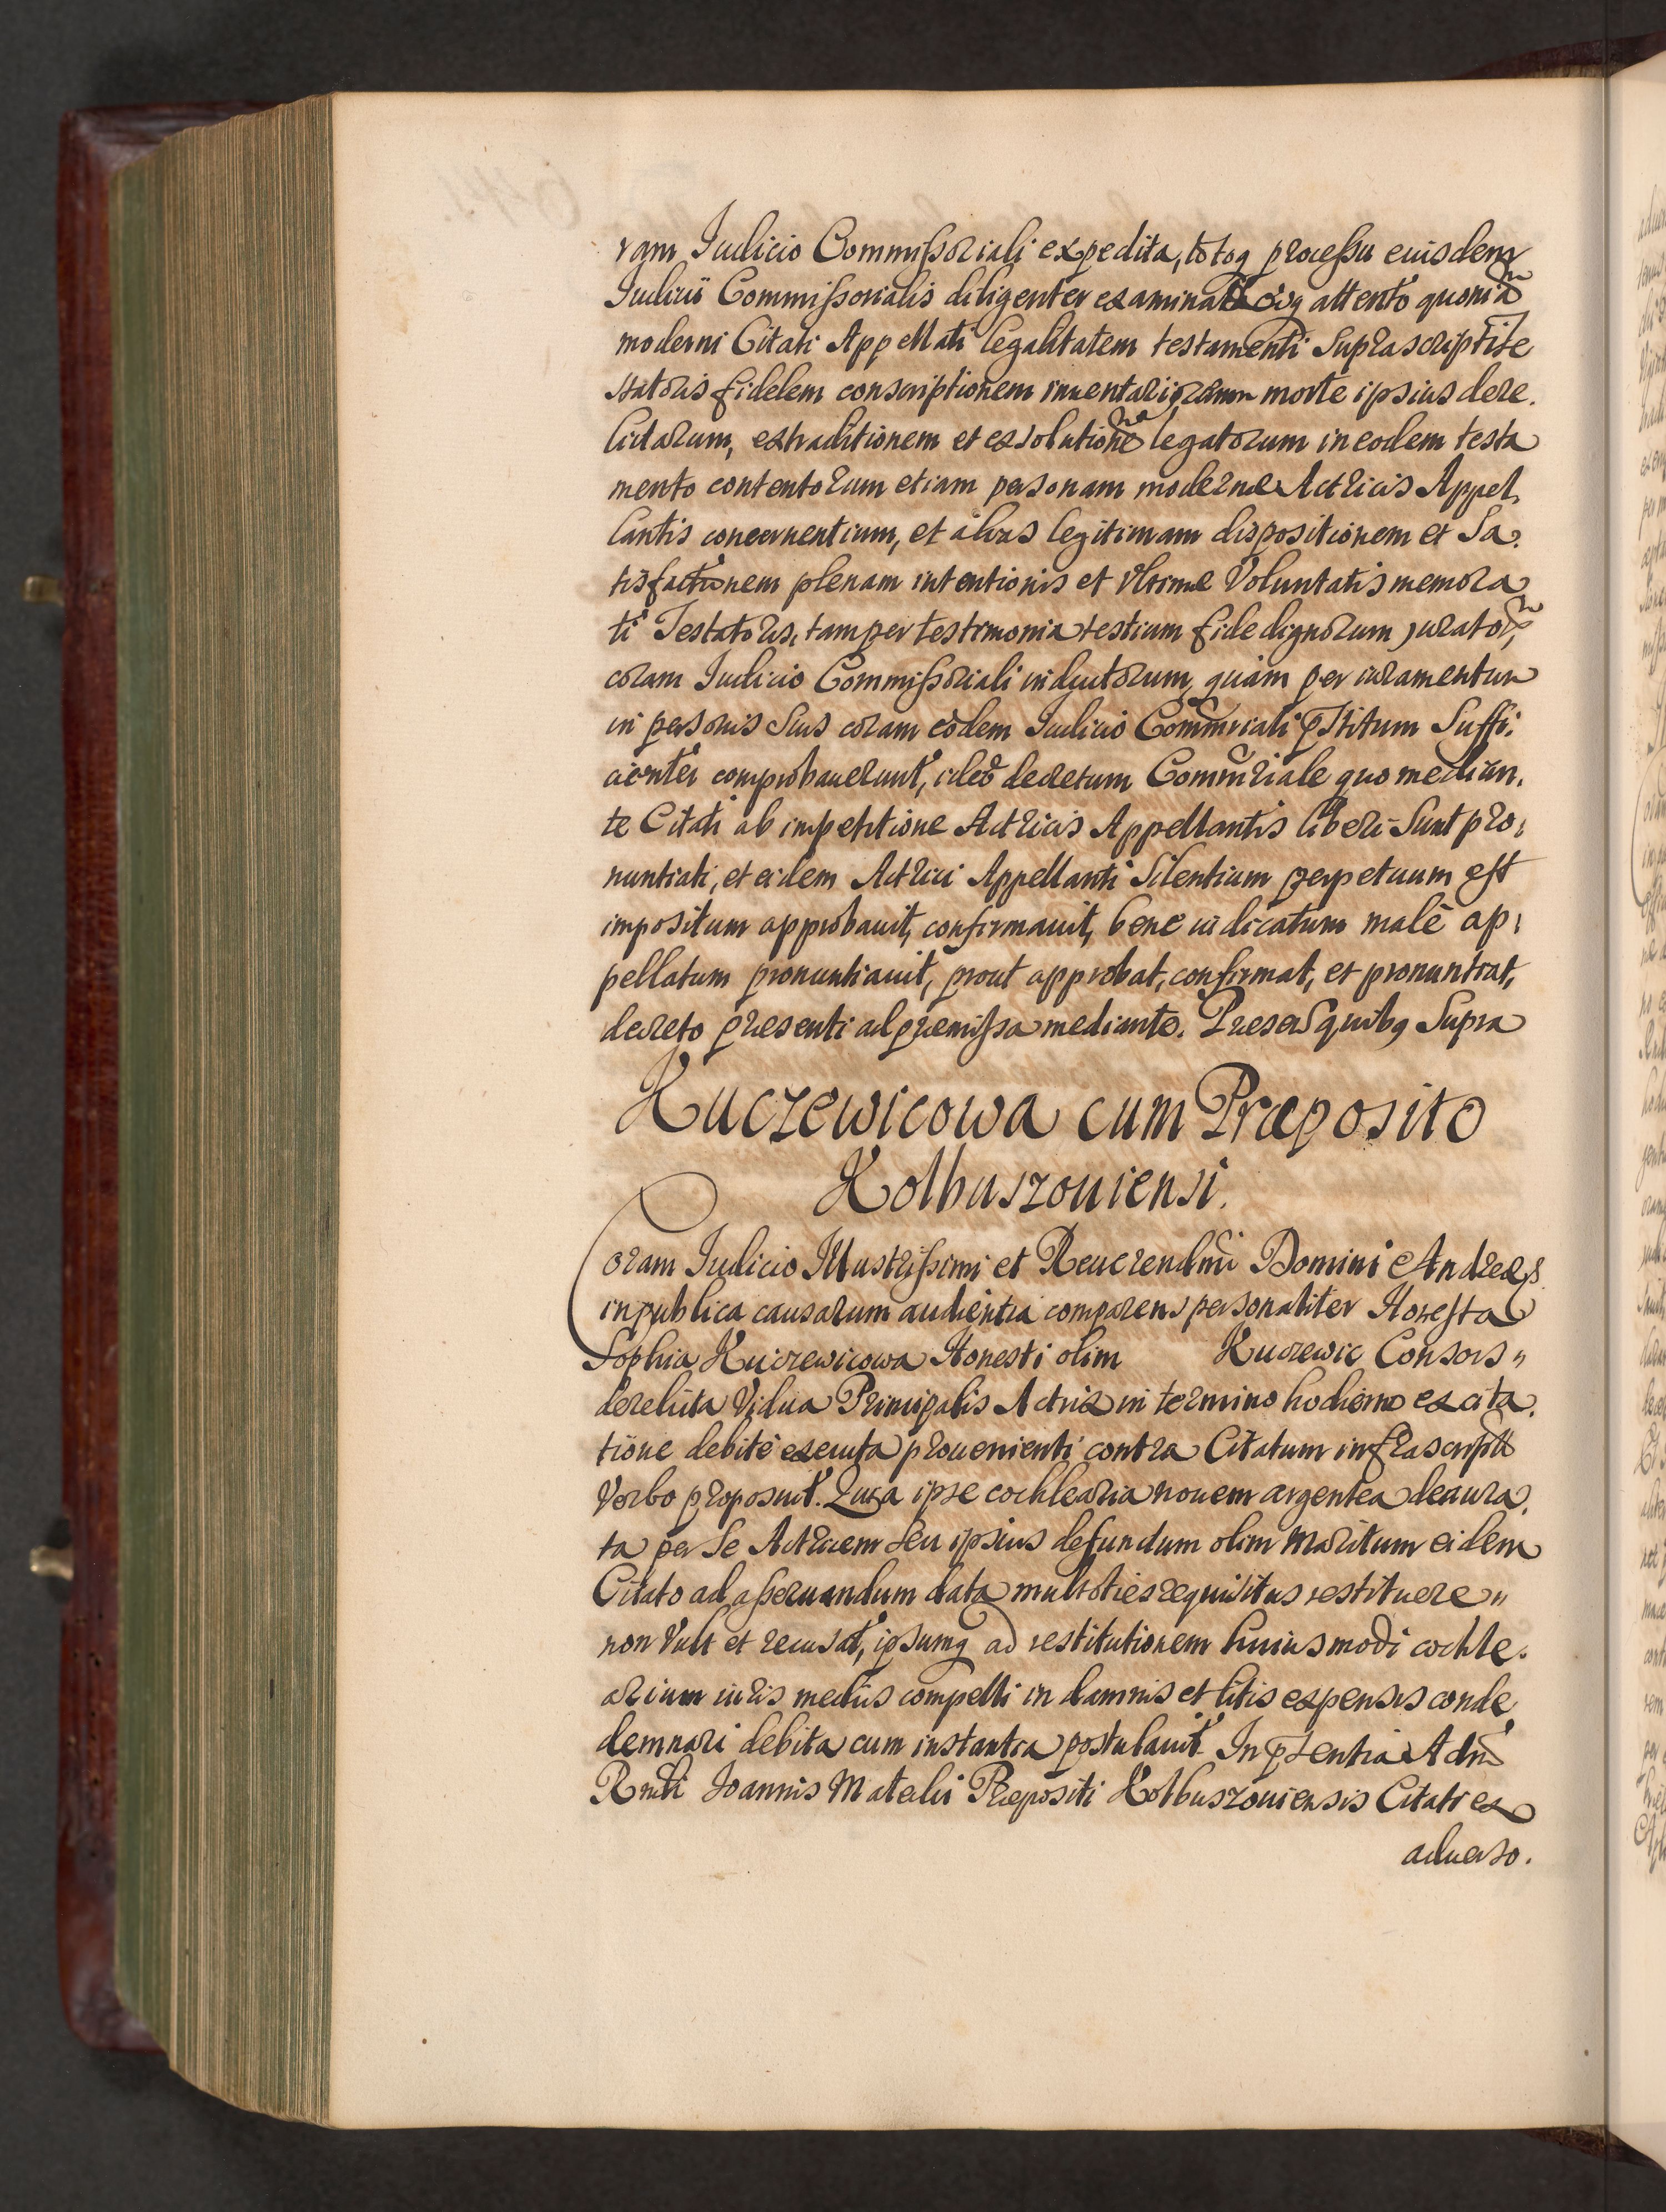 ram Iudicio Commissoriali expedita, totoq processu eiusdem
Iudicii Commissorialis diligenter examinato eoq attento quoniã
moderni Citati Appellati legalitatem testamenti Suprascripti Te
statoris fidelem conscriptionem inuentarii rerum morte ipsius dere.
lictarum, extraditionem et exsolutionẽ legatorum in eodem testa
mento contentorum etiam personam modernæ Actricis Appel,
lantis concernentium, et alias legitimam dispositionem et Sa.
tisfactionem plenam intentionis et vltimæ Voluntatis memora
ti Testatoris, tam per testimonia testium fide dignorum jurator,
coram Iudicio Commissoriali inductorum, quàm per iuramentum
in personis Suis coram eodem Iudicio Commriali pstitum Suffi.
cienter comprobauerunt, ideo decretum Commriale quo median,
te Citati ab impetitione Actricis Appellantis liberi Sunt pro,
nuntiati, et eidem Actrici Appellanti Silentium perpetuum est
impositum approbauit, confirmauit, bene iudicatum malè ap,
pellatum pronuntiauit, prout approbat, confirmat, et pronuntiat,
decreto presenti ad præmissa mediante. Presen quibq Supra
Kuczewicowa cum Præposito
Kolbuszouiensi.
Coram Iudicio Illustrissimi et Reuerendmi Domini Andreæ
in publica causarum audientia comparens personaliter Honesta
Sophia Kuczewicowa Honesti olim Kuczewic Consors "
derelicta Vidua Principalis Actrix in termino hodierno ex cita,
tione debitè executa prouenienti contra Citatum infrascriptũ
Verbo proposuit. Quia ipse cochlearia nouem argentea deaura,
ta per Se Actricem seu ipsius defunctum olim Maritum eidem
Citato ad asseruandum data multoties requisitus restituere "
non Vult et recusat, ipsumq ad restitutionem huiusmodi cochle.
arium iuris mediis compelli in damnis et litis expensis conde
demnari debita cum instantia postulauit. In psentia Adm
Rndi Ioannis Matecki Præpositi Kolbuszouiensis Citati ex
aduerso.